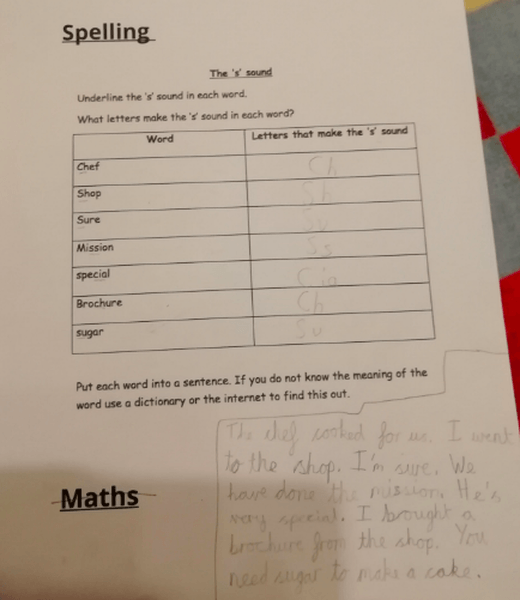 Spelling
The 's' sound
Underline the 's' sound in each word.
What letters make the 's' sound in each word?
Word Letters that make the 's' sound
Chef Ch
Shop Sh
Sure Su
Mission Ss
special Cia
Brochure Ch
sugar Su
Put each word into a sentence. If you do not know the meaning of the
word use a dictionary or the internet to find this out.
The chef cooked for us. I went
to the shop. I'm sure. We
have done the mission. He's
very special. I brought a
brochure from the shop. You
need sugar to make a cake.
Maths